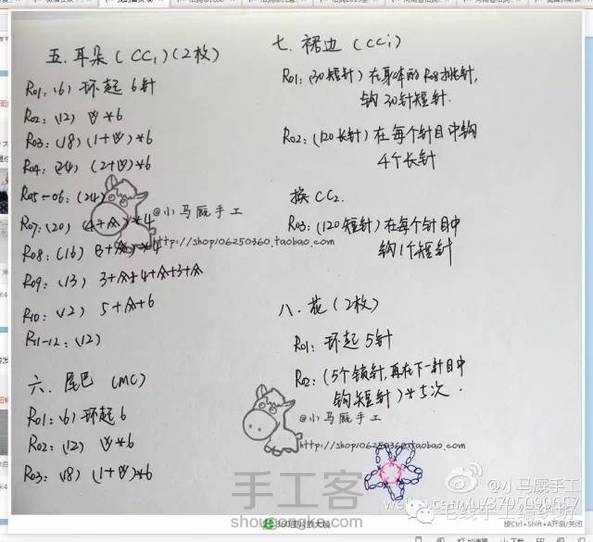 五、耳朵(CC1)(2枚)
R01:(6)环起6针
R02:(12) V*6
R03:(18)(1+V)*6
R04:(24)(2+V)*6
R05-06:(24)
R07:(20)(4+A)*4
R08:(16)(3+A)*4
R09:(13) 3+A+4+A+3+A
R10:(12) 5+A+6
R11-12:(12)
六、尾巴(MC)
R01:(6)环起6
R02:(12) V*6
R03:(18)(1+V)*6
七、裙边(CC1)
R01:(30短针)在身体的R08挑针,
钩30针短针.
R02:(120长针)在每个针目中钩
4个长针
换CC2.
R03:(120短针)在每个针目中
钩1个短针
八、花(2枚)
R01:环起5针
R02:(5个锁针,再在下一针目中
钩短针)*5次.
@小马厩手工
http://shop106250360.taobao.com
@小马厩手工
http://shop106250360.taobao.com
手工客
shougongke.com
@小马厩手工
毛线手工编织坊
按Ctrl+Shift+A开启/关闭